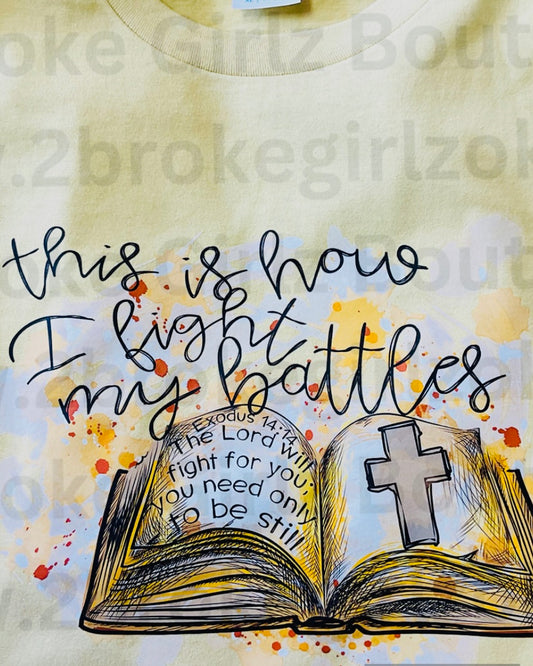 2broke Girlz Bout
w.2brokegirlzok
this is how
I fight
my battles
Exodus 14:14
The Lord will
fight for you;
you need only
to be still